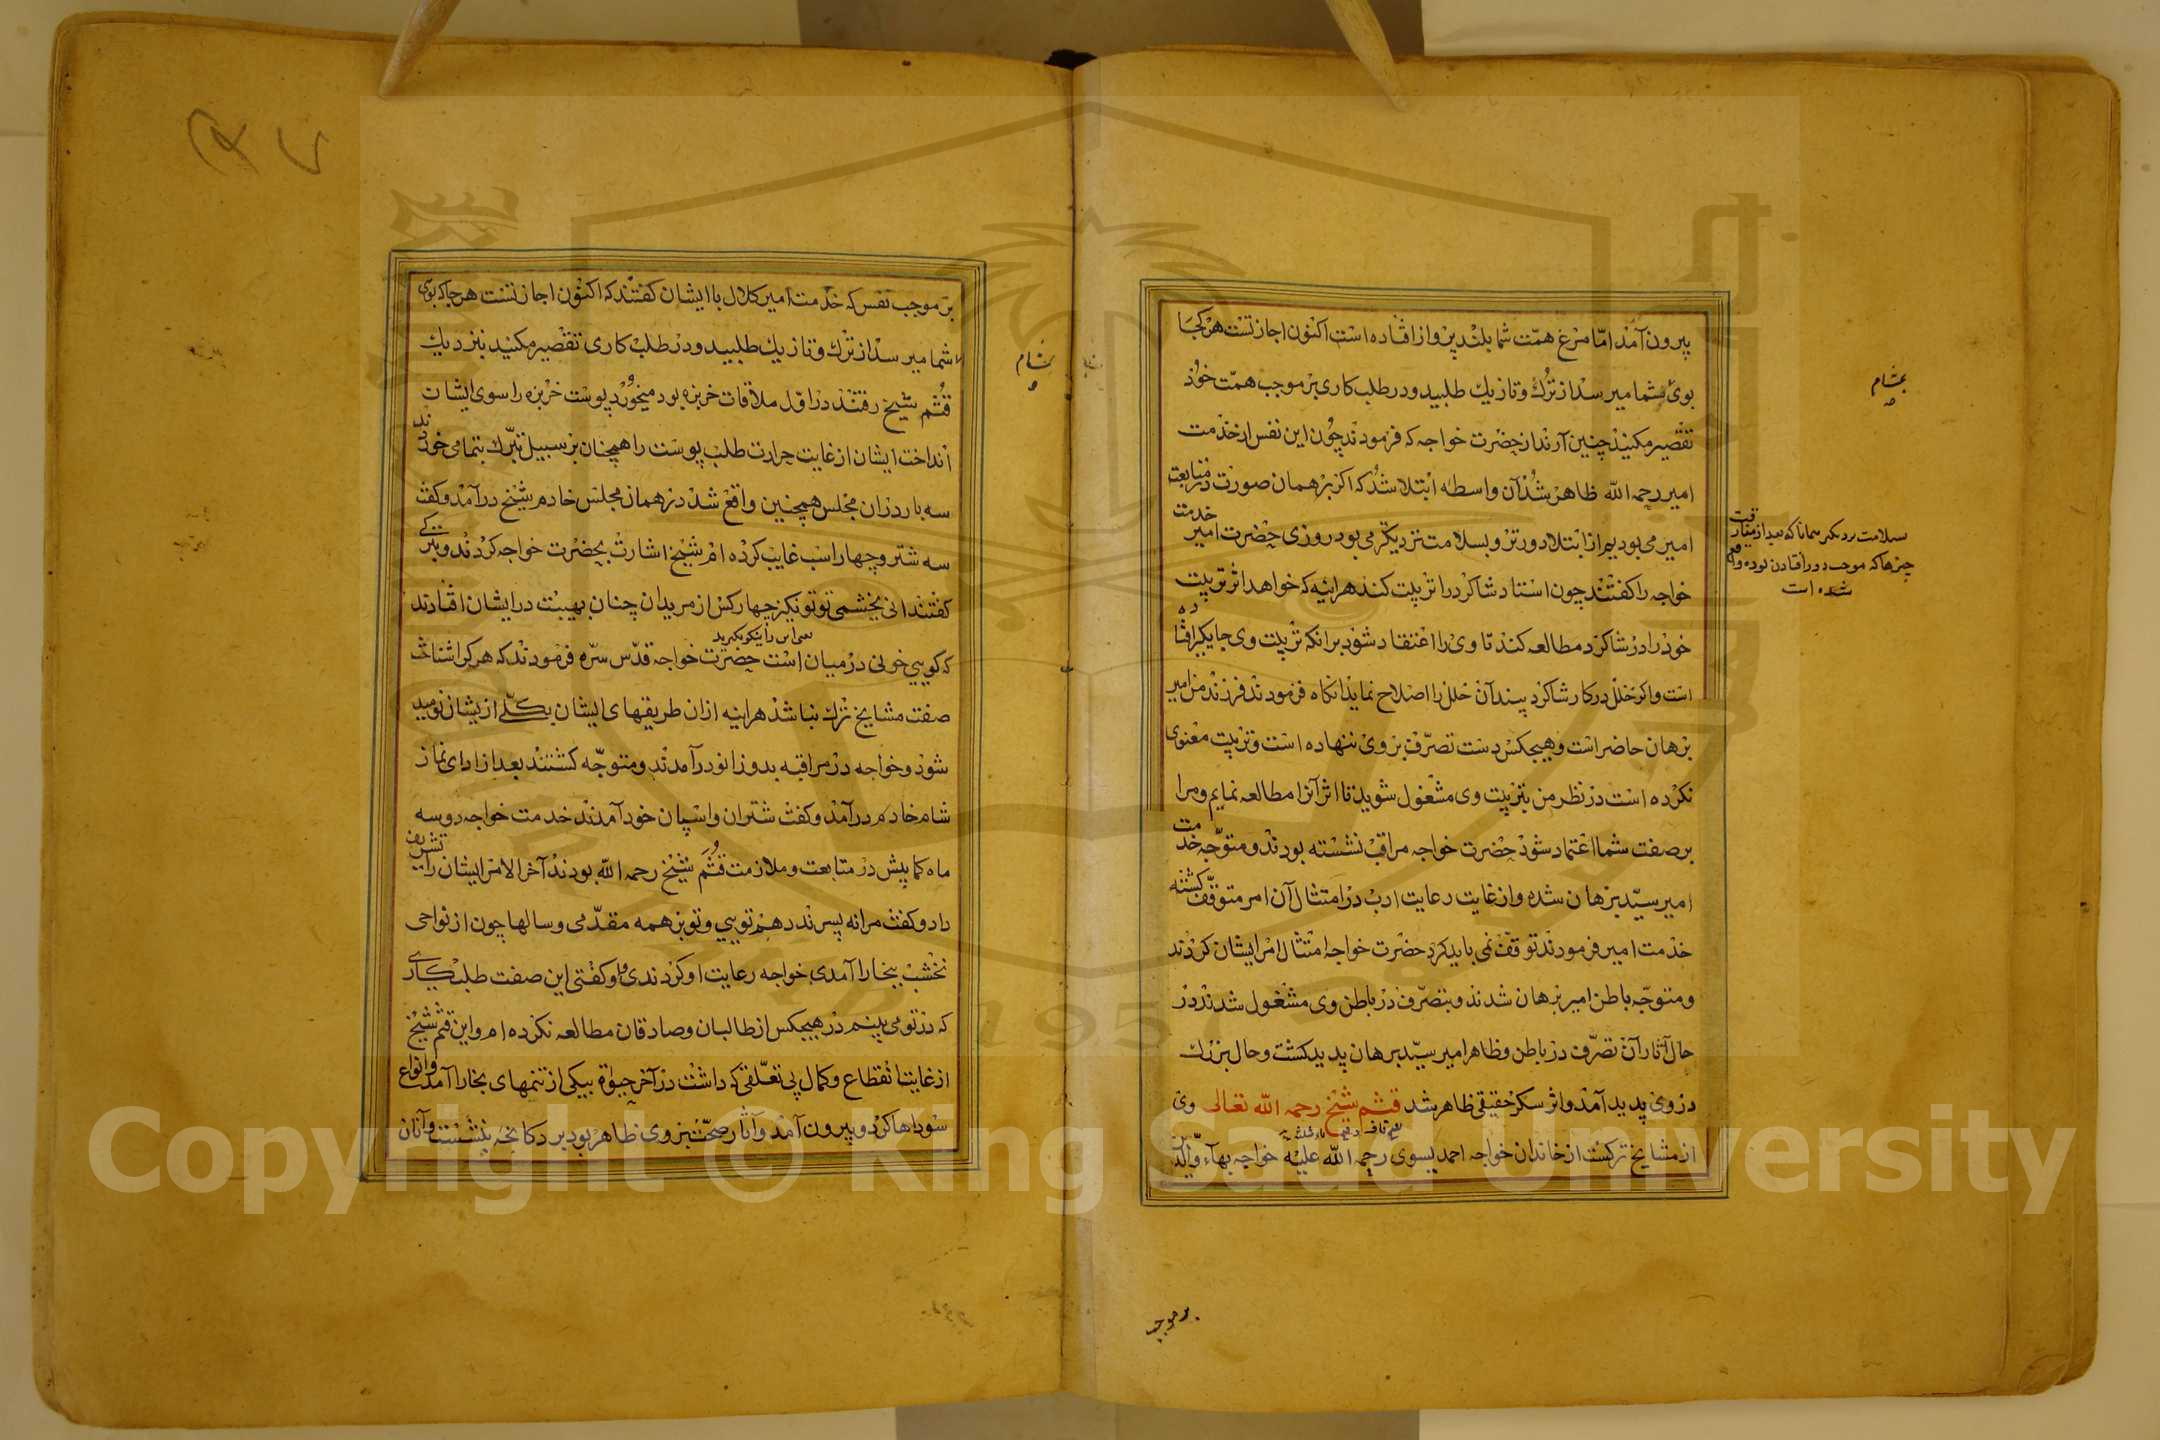 بیرون آمد اما مرغ همت شما بلند پرواز افتاده است اکنون اجازتست هر کجا
بوی بشما میرسد از ترک و تازیک طلبید و در طلب کاری بر موجب همت خود
تقصیر مکنید چنین آرند از حضرت خواجه که فرمودند چون این نفس از خدمت
امیر رحمه الله ظاهر شد آن واسطه ابتلا شد که اگر بر همان صورت در متابعت
امیر می بودیم از ابتلا دورتر و بسلامت نزدیکتر می بود روزی حضرت امیر خدمت
خواجه را کفتند چون استاد شاکرد را تربیت کند هر اینه که خواهد اثر تربیت
خود را در شاکرد مطالعه کند تا وی را اعتقاد شود برانکه تربیت وی جایکیر افتاده
است و اکر خلل در کار شاکرد بیند آن خلل را اصلاح نماید انکاه فرمودند فرزند من امیر
برهان حاضر است و هیچکس دست تصرف بر وی ننهاده است و تربیت معنوی
نکرده است در نظر من بتربیت وی مشغول شوید تا اثر آنرا مطالعه نمایم و مرا
بر صفت شما اعتماد شود حضرت خواجه مراقب نشسته بودند و متوجه خدمت
امیر سید برهان شده و از غایت رعایت ادب در امتثال آن امر متوقف کشته
خدمت امیر فرمودند توقف نمی باید کرد حضرت خواجه امتثال امر ایشان کردند
و متوجه باطن امیر برهان شدند و بتصرف در باطن وی مشغول شدند در
حال آثار آن تصرف در باطن و ظاهر امیر سید برهان پدید کشت و حال بزرک
در وی پدید آمد و اثر سکر حقیقی ظاهر شد قثم شیخ رحمه الله تعالی وی
از مشایخ ترکست از خاندان خواجه احمد یسوی رحمه الله علیه خواجه بهاء الدین
بمشام
بسلامت نزدیکتر همانا که بعد از مفارقت
چیزها که موجب دور افتادن بوده واقع
شده است
بر موجب
بر موجب نفس که خدمت امیر کلال با ایشان کفتند که اکنون اجازتست هر جا که بوی
بشما میرسد از ترک و تازیک طلبید و در طلب کاری تقصیر مکنید بنزدیک
قثم شیخ رفتند در اول ملاقات خربزه بود میخورد پوست خربزه را سوی ایشان
انداخت ایشان از غایت حرارت طلب پوست را همچنان بر سبیل تبرک بتمامی خوردند
سه بار در ان مجلس همچنین واقع شد در همان مجلس خادم شیخ درآمد و کفت
سه شتر و چهار اسب غایب کرده ام شیخ اشارت بحضرت خواجه کردند و بترکی
کفتند انی یخشی توتونکیز چهار کس از مریدان چنان بهیبت در ایشان افتادند
یعنی این را نیکو بکیرید
که کویی خونی در میان است حضرت خواجه قدس سره فرمودند که هر کرا شناخت
صفت مشایخ ترک نباشد هراینه از ان طریقهای ایشان بکلی ازیشان نومید
شود و خواجه در مراقبه بدو زانو درآمدند و متوجه کشتند بعد از ادای نماز
شام خادم درآمد و کفت شتران و اسپان خود آمدند خدمت خواجه دو سه
ماه کمابیش در متابعت و ملازمت قثم شیخ رحمه الله بودند آخر الامر ایشان را تشریف
داد و کفت مرا نه پسرند دهم تویی و تو بر همه مقدمی و سالها چون از نواحی
نخشب ببخارا آمدی خواجه رعایت او کردندی و او کفتی این صفت طلب کاری
که در تو می بینم در هیچکس از طالبان و صادقان مطالعه نکرده ام و این قثم شیخ
از غایت انقطاع و کمال بی تعلقی که داشت در آخر حیوة بیکی از تیمهای بخارا آمد و انواع
سوداها کرد و بیرون آمد و آثار صحت بر وی ظاهر بود بر دکانچه بنشست و آنان
بمشام